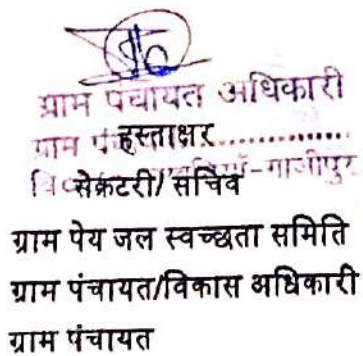 ग्राम पंचायत अधिकारी
ग्राम हस्ताक्षर..............
सेक्रेटरी/ सचिव -गाजीपुर
ग्राम पेय जल स्वच्छता समिति
ग्राम पंचायत/विकास अधिकारी
ग्राम पंचायत